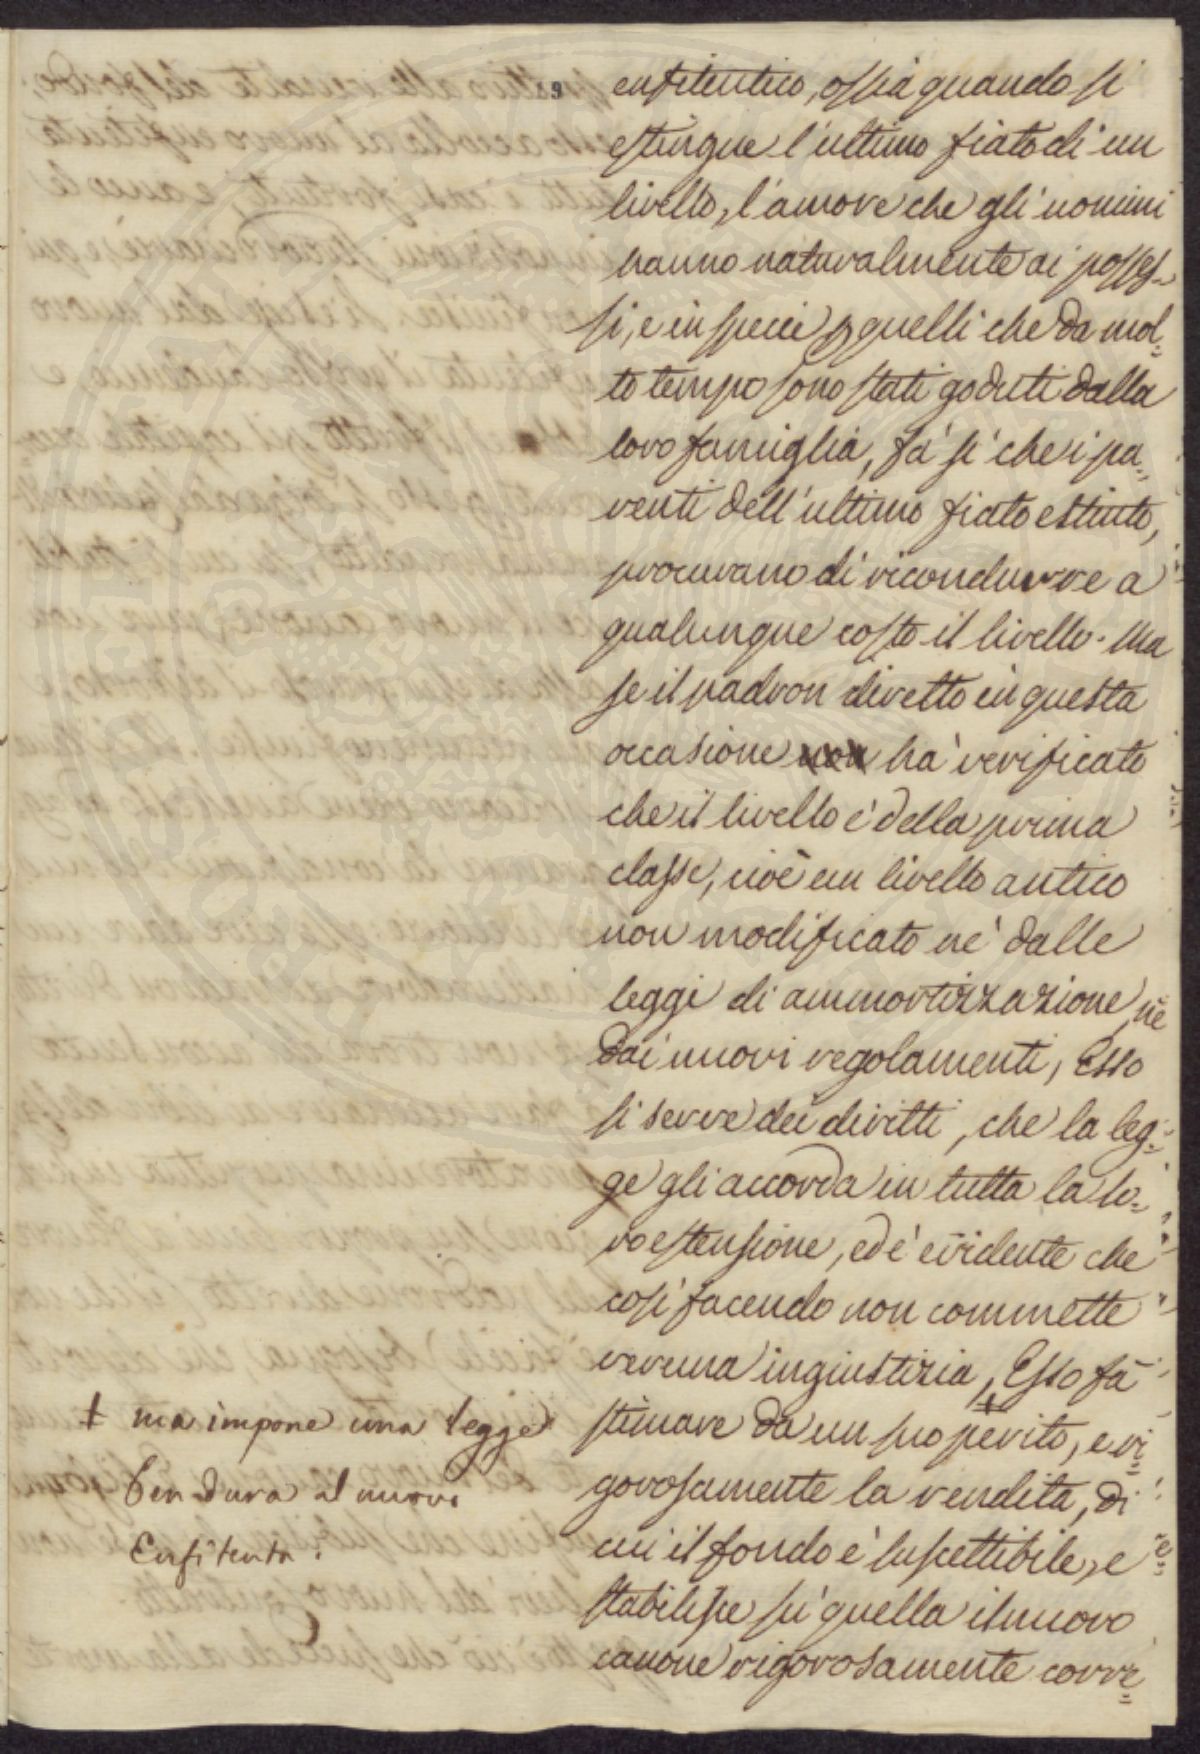 9
enfiteutico, ossia quando si
estingue l'ultimo fiato di un
livello, l'amore che gli uomini
hanno naturalmente ai posses-
si, e in specie p quelli che da mol=
to tempo sono stati goduti dalla
loro famiglia, fà sì che i pa=
renti dell'ultimo fiato estinto,
procurano di ricondurre a
qualunque costo il livello. Ma
se il padron diretto in questa
occasione non hà verificato
che il livello è della prima
classe, cioè un livello antico
non modificato nè dalle
leggi di ammortizzazione nè
dai nuovi regolamenti, Esso
si serve dei diritti, che la leg=
ge gli accorda in tutta la lo=
ro estensione, ed è evidente che
così facendo non commette
veruna ingiustizia, + Esso fà
stimare da un suo perito, e ri=
gorosamente la rendita, di
cui il fondo è suscettibile, e
stabilisce sù quella il nuovo
canone rigorosamente corre=
+ ma impone una legge
ben dura al nuovo
Enfiteuta.